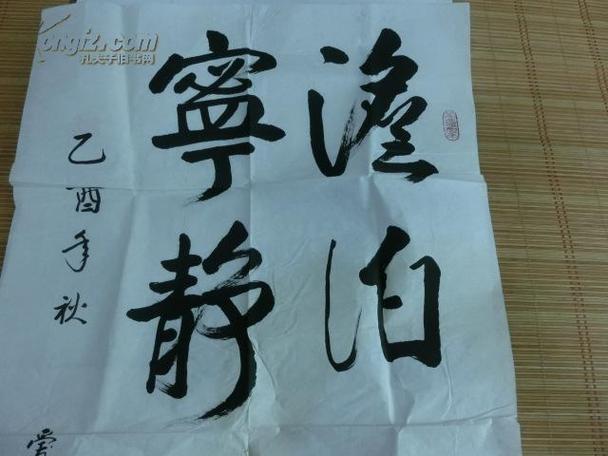 澹泊
寧静
乙酉年秋
kongfz.com
孔夫子旧书网